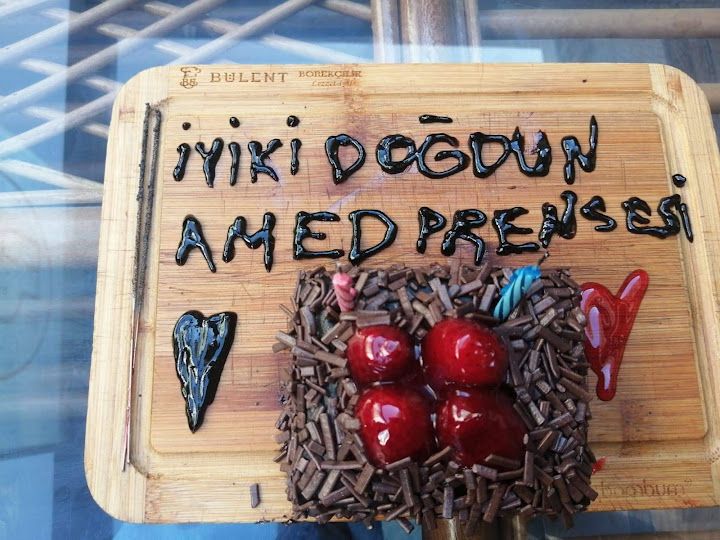 BÜLENT BÖREKÇİLİK
İYİKİ DOĞDUN
AMED PRENSESİ
bambum